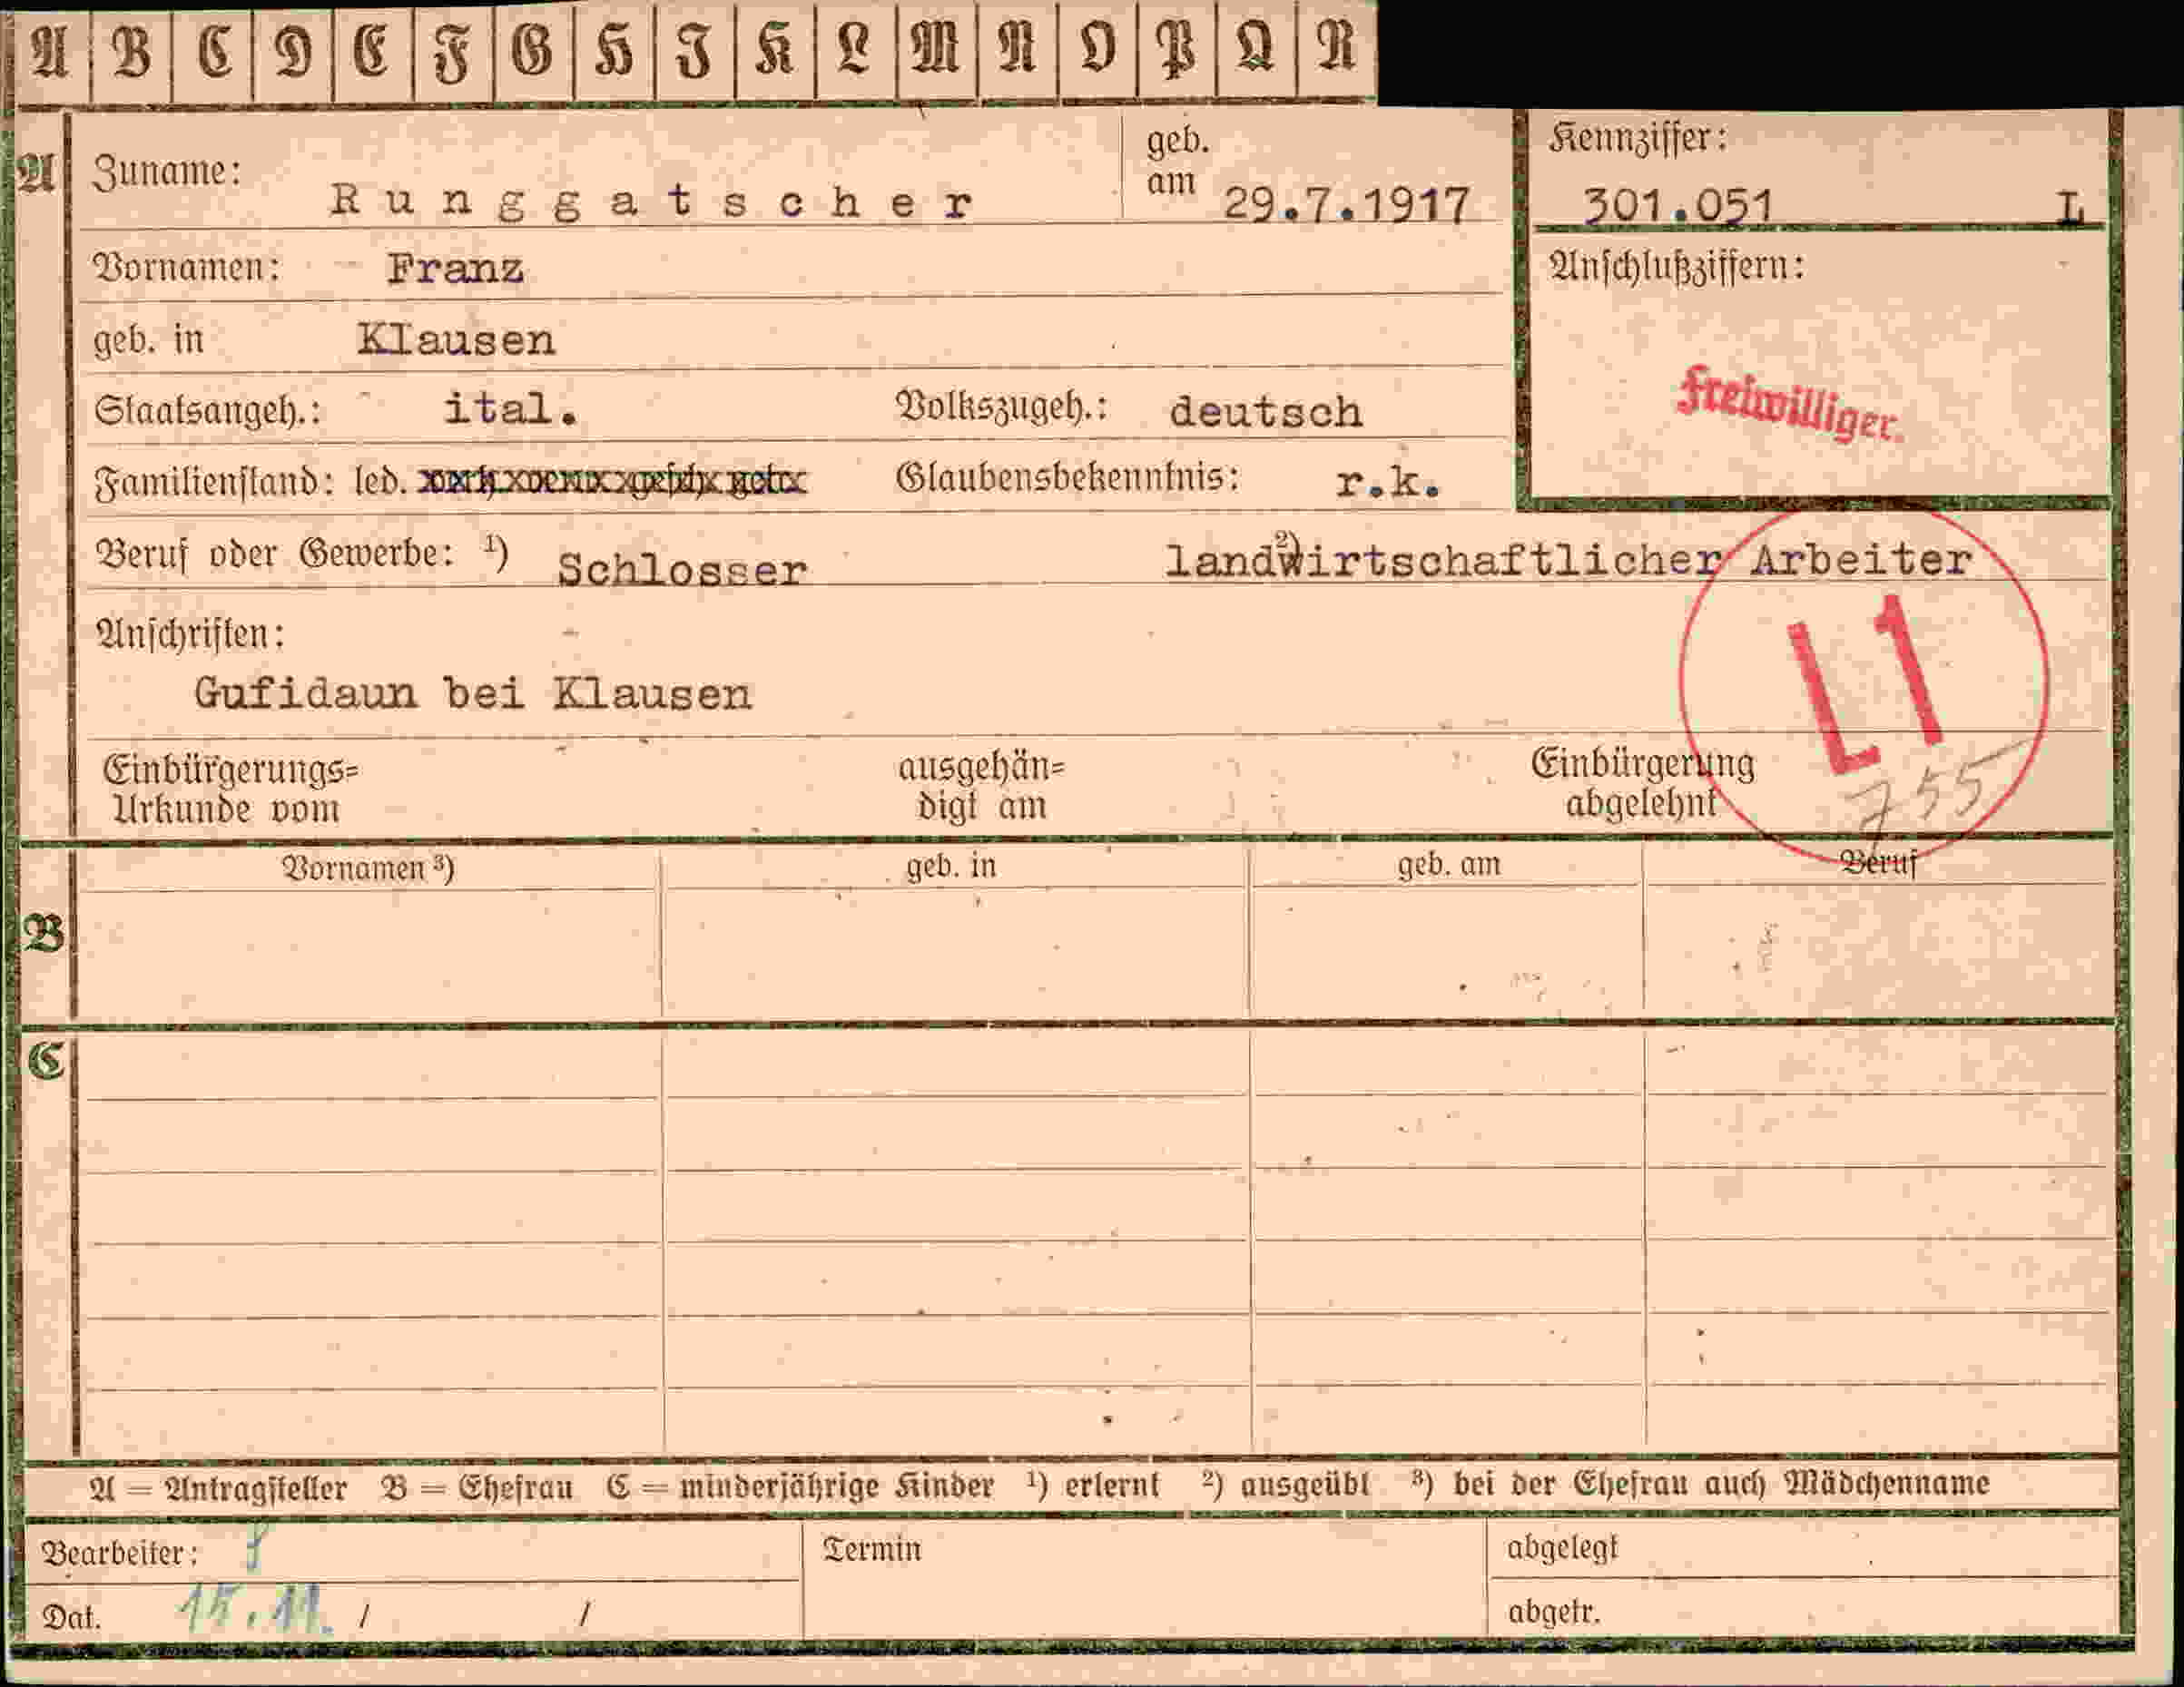 A B C D E F G H I K L M N O P Q R
A Zuname: Runggatscher geb. am 29.7.1917 Kennziffer: 301.051 L
Vornamen: Franz Anschlußziffern:
geb. in Klausen
Freiwilliger.
Staatsangeh.: ital. Volkszugeh.: deutsch
Familienstand: led. Glaubensbekenntnis: r.k.
Beruf oder Gewerbe: ¹) Schlosser ²) landwirtschaftlicher Arbeiter
Anschriften:
L1
Gufidaun bei Klausen
Einbürgerungs= ausgehän= Einbürgerung
Urkunde vom digt am abgelehnt
755
Vornamen ³) geb. in geb. am Beruf
B
C
A = Antragsteller B = Ehefrau C = minderjährige Kinder ¹) erlernt ²) ausgeübt ³) bei der Ehefrau auch Mädchenname
Bearbeiter: Termin abgelegt
Dat. 15.11. / / abgetr.